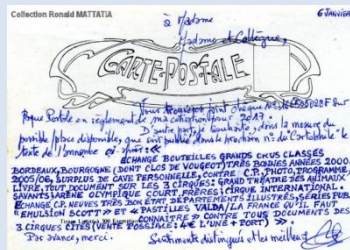 Collection Ronald MATTATIA
6 JANVIER
à Madame
Madame et Collègue,
CARTE-POSTALE
Vous trouverez joint chèque N° sur
Poste en règlement de ma cotisation 2017.
D'autre part, je souhaite, dans la mesure du
possible/place disponible, que soit publié dans le prochain n° du Cartabile le
texte de l'annonce
ÉCHANGE BOUTEILLES GRANDS CRUS CLASSÉS
BORDEAUX, BOURGOGNE (DONT CLOS DE VOUGEOT) TRÈS BONNES ANNÉES 2000.
2005/06, SURPLUS DE CAVE PERSONNELLE, CONTRE C.P., PHOTO, PROGRAMME,
LIVRE, TOUT DOCUMENT SUR LES 3 CIRQUES: GRAND THÉATRE DES ANIMAUX
SAVANTS/ARÈNE OLYMPIQUE COUAT, FRÈRES/CIRQUE INTERNATIONAL.
ÉCHANGE C.P. NEUVES TRÈS BON ÉTAT, DÉPARTEMENTS ILLUSTRÉS, SÉRIES PUB
"EMULSION SCOTT" ET "PASTILLES VALDA/LA FRANCE QU'IL FAUT
CONNAITRE" CONTRE TOUS DOCUMENTS DES
3 CIRQUES CITÉS (VENTE POSSIBLE: 4€ L'UNE + PORT) ".
Par avance, merci. Sentiments distingués et les meilleurs